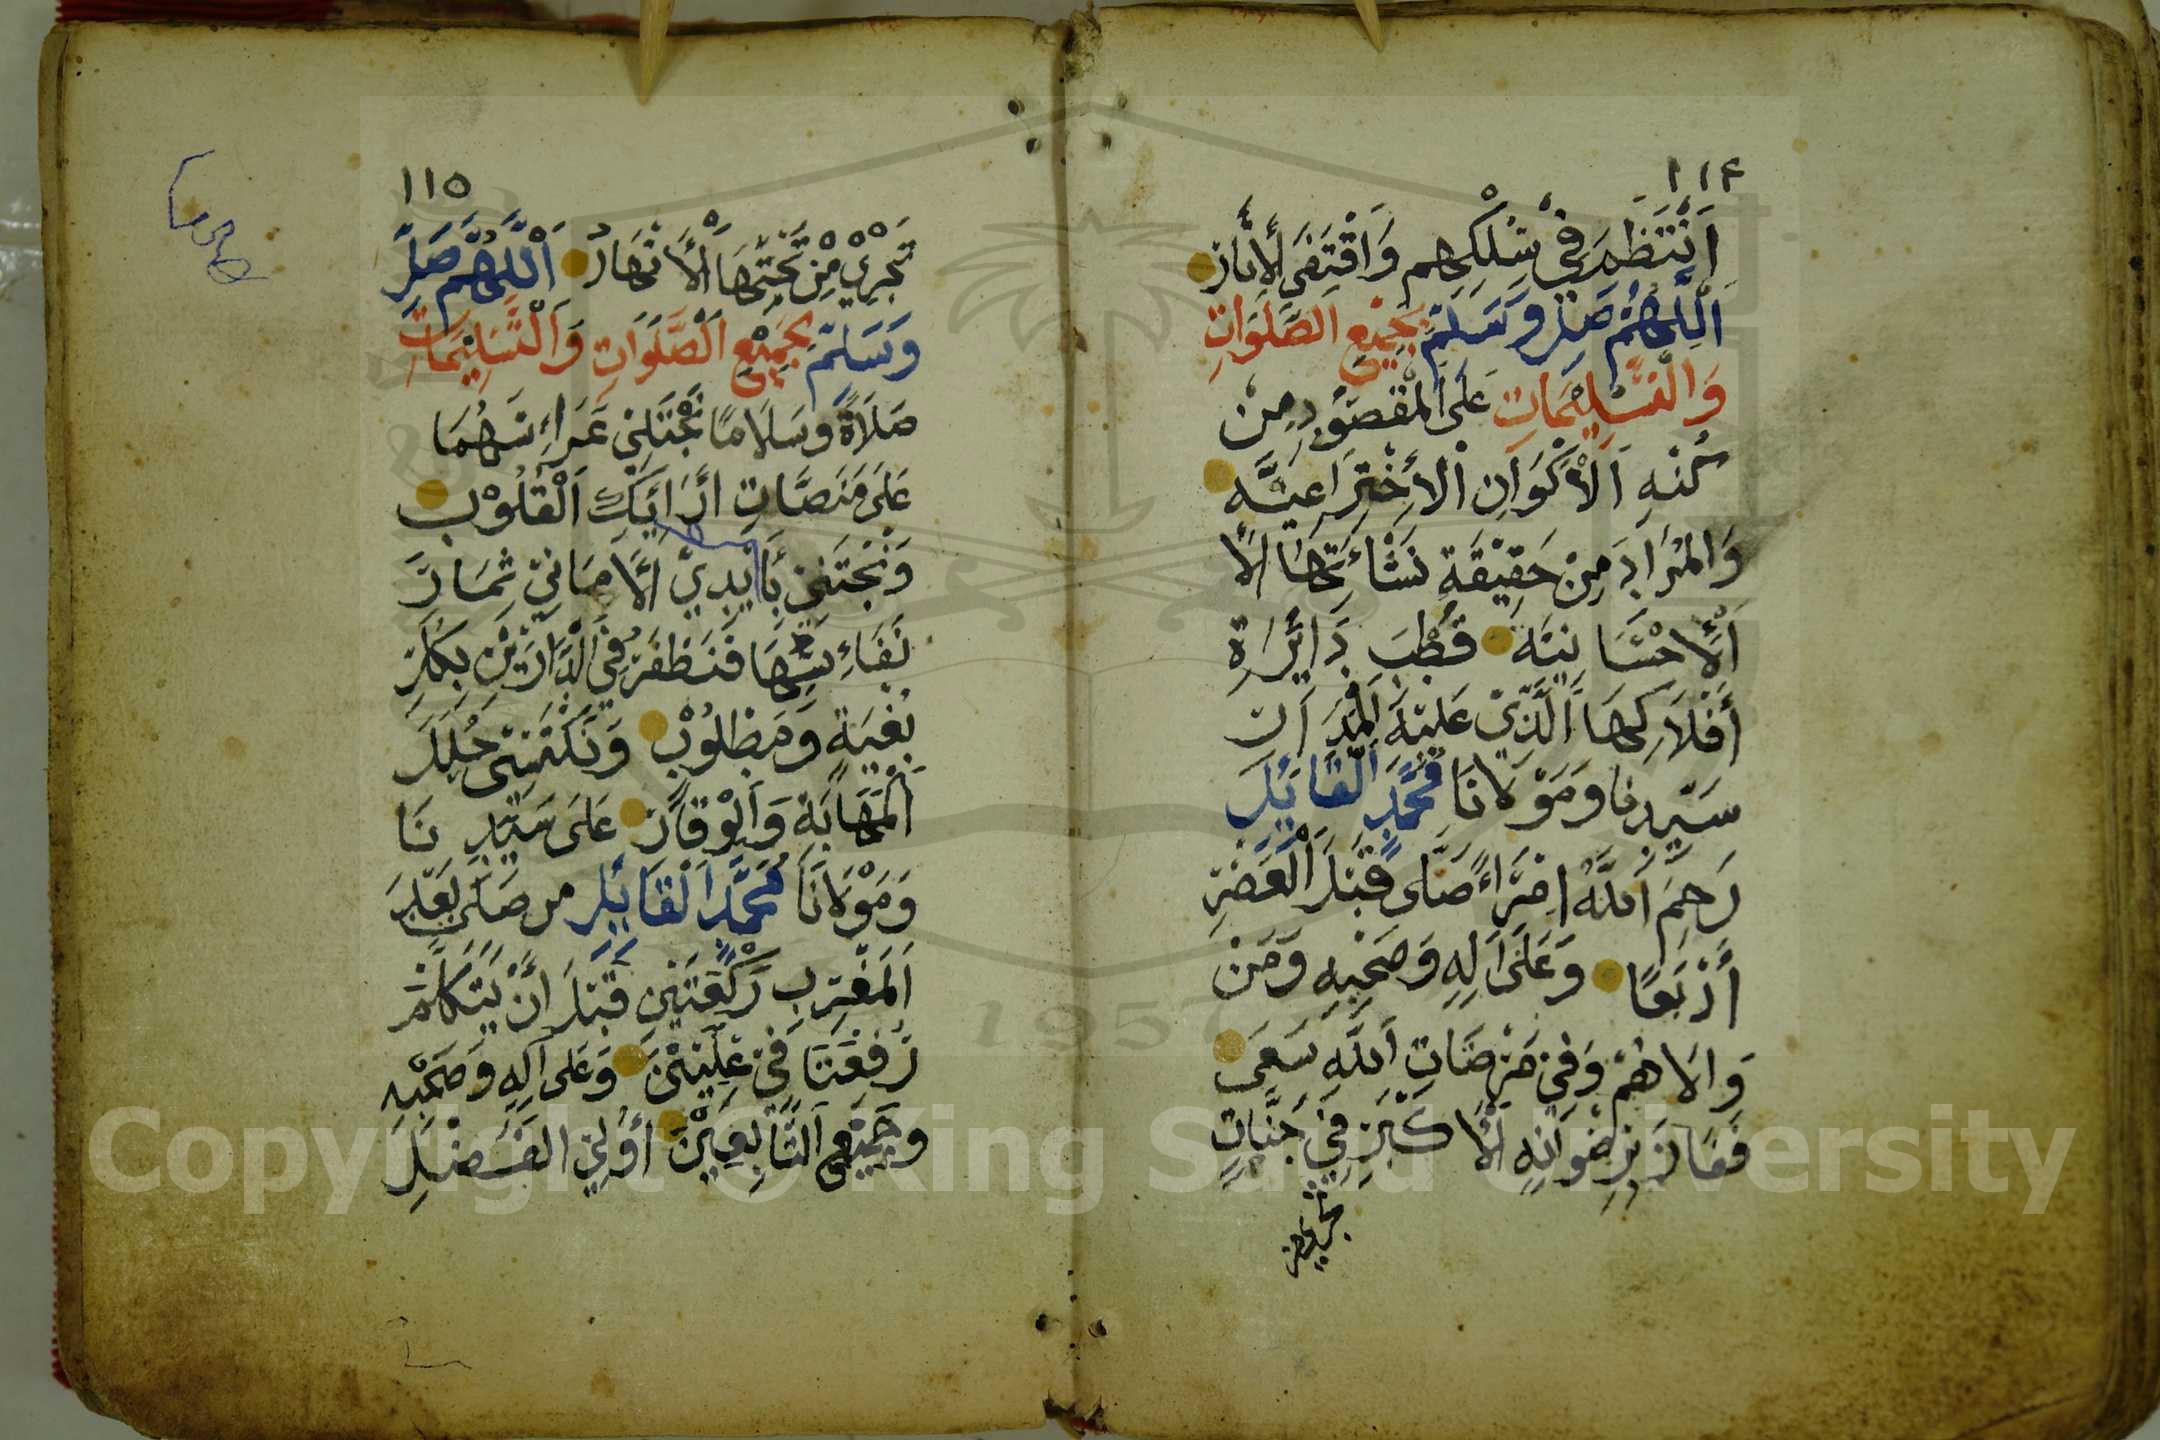 ١١٤
اَنْتَظَمَ فِيْ سِلْكِهِم وَاقْتَفَى الاٰثارْ
اَللّٰهُمَّ صَلِّ وَسَلِّمْ بِجَمِيْعِ الصَّلَوَاتِ
وَالْتَسْلِيْمَاتِ عَلَى الْمَقْصُوْدِ مِنْ
كُنْهِ اَلْأَكْوَانِ الْأِخْتِرَاعِيَّه
وَالمُرَادِ مِنْ حَقِيْقَةِ نَشْأَتِهَا الاَّ
اَلْأِحْسَانِيَّه قُطْبِ دَائِرَةِ
أَفْلَاكِهَا اَلَّذِيْ عَلَيْهِ اَلْمَدَارْ
سَيِّدِنا وَمَوْلَانَا مُحَمَّدٍ اَلْقَائِلِ
رَحِمَ اَللَّهُ اِمْرَاءً صَلَّى قَبْلَ الْعَصْرِ
أَرْبَعًا وَعَلَى اَلِهِ وَصَحْبِهِ وَمَنْ
وَالَاهُمْ وَفِيْ مَرْضَاتِ اَللَّهِ سَعَى
فَفَازَ بِرِضْوَانِهِ اَلْأَكْبَرِ فِيْ جَنَّاتٍ
تجري من
١١٥
تَجْرِيْ مِنْ تَحْتِهَا اَلْأَنْهَارْ اَللّٰهُمَّ صَلِّ
وَسَلِّمْ بِجَمِيْعِ اَلْصَّلَوَاتِ وَاَلْتَّسْلِيْمَاتِ
صَلَاةً وَسَلَامًا نَجْتَلِيْ عَرَاءِسَهُمَا
عَلَى مَنَصَّاتِ اَرَائِكِ اَلْقُلُوْب
وَنَجْتَنِيْ بِاَيْدِيْ اَلْأَمَانِيْ ثِمَارَ
نَفَاءِسِهَا فَنَظْفَرُ فِيْ اَلْدَّارَيْنِ بِكُلِّ
بُغْيَةٍ وَمَطْلُوْبْ وَنَكْتَسِيْ حُلَلَ
اَلْمَهَابَةِ وَاَلْوَقَارْ عَلَى سَيِّدِنَا
وَمَوْلَانَا مُحَمَّدٍ اَلْقَائِلِ من صَلَّى بَعْدَ
اَلْمَغْرِبِ رَكْعَتَيْنِ قَبْلَ اَنْ يَتَكَلَّمَ
رُفِعَتَا فِيْ عِلِّيِّيْنَ وَعَلى آلِهِ وَصَحْبِهِ
وجَمِيْعِ اَلتَّابِعِيْنَ أُوْلِيْ الْفَضْلِ
Copyright © King Saud University
1957